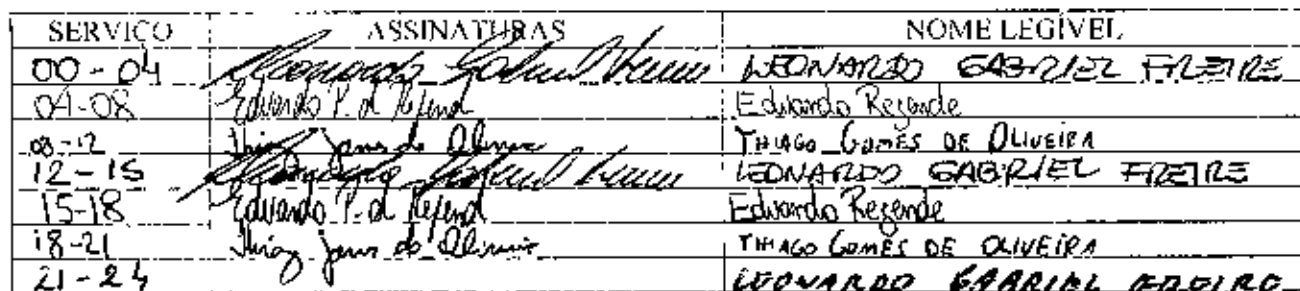 SERVIÇO ASSINATURAS NOME LEGÍVEL
00 - 04 Leonardo Gabriel Freire LEONARDO GABRIEL FREIRE
04-08 Eduardo P. de Rezende Eduardo Rezende
08-12 Thiago Gomes de Oliveira THIAGO GOMES DE OLIVEIRA
12-15 Leonardo Gabriel Freire LEONARDO GABRIEL FREIRE
15-18 Eduardo P. de Rezende Eduardo Rezende
18-21 Thiago Gomes de Oliveira THIAGO GOMES DE OLIVEIRA
21-24 LEONARDO GABRIEL FREIRE